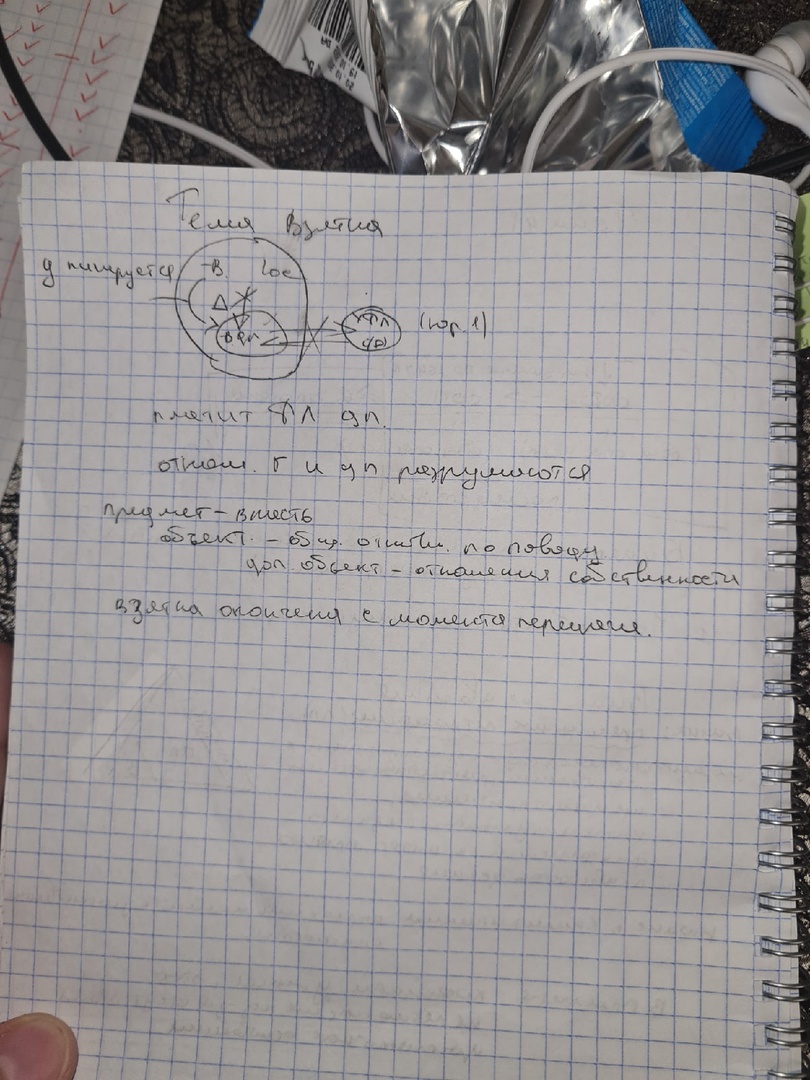 Тема Взятка
В. Гос
Δ
ФЛ
(юр. 1)
платит ФЛ дп.
отнош. Г и дп разрушаются
предмет – власть
объект. – общ. отнош. по поводу
доп объект – отношения собственности
взятка окончена с момента передачи.